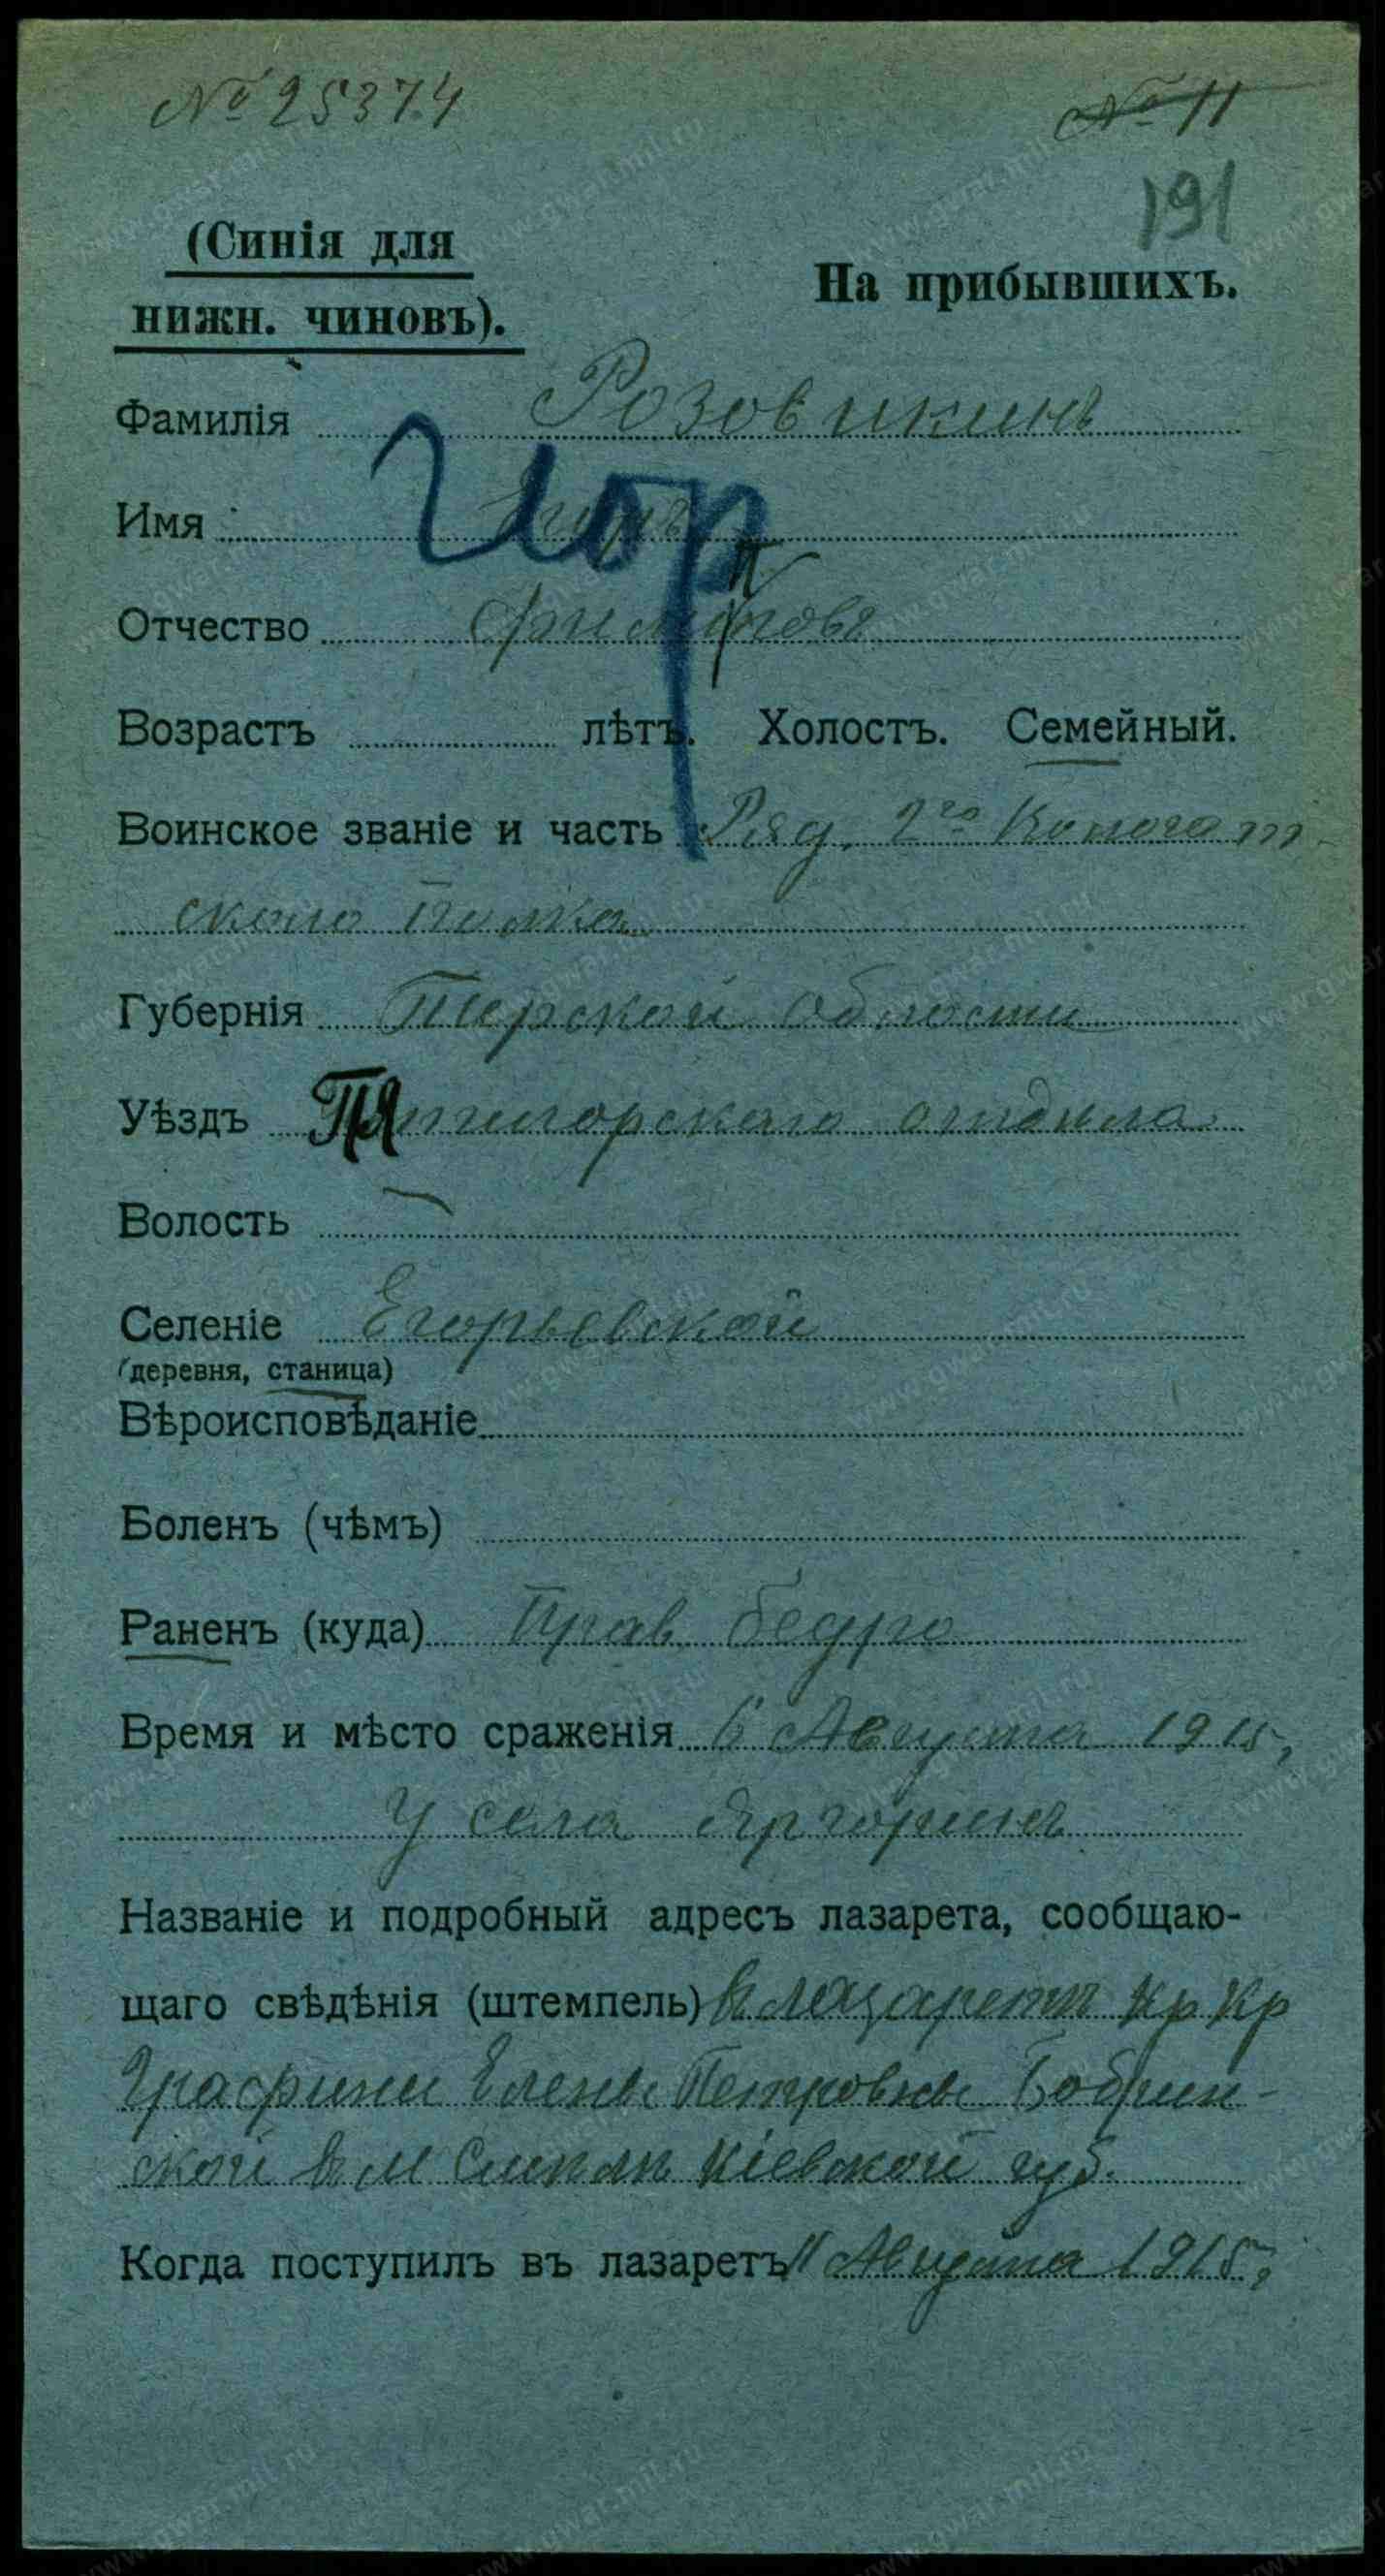 № 25374
№ 11
191
(Синія для
нижн. чиновъ).
На прибывшихъ.
Фамилія Розовикинъ
Имя
Отчество
Возрастъ лѣтъ. Холостъ. Семейный.
Воинское званіе и часть Ряд. 2го
скаго Полка
Губернія Терской области
Уѣздъ Пятигорскаго отдѣла
Волость
Селеніе Егорьевской
(деревня, станица)
Вѣроисповѣданіе
Боленъ (чѣмъ)
Раненъ (куда) Прав. бедро
Время и мѣсто сраженія 6 Августа 1915,
У села
Названіе и подробный адресъ лазарета, сообщаю-
щаго свѣдѣнія (штемпель) В лазаретъ Кр Кр
Графини Елены Петровны Бобрин-
ской в м Смела Кіевской губ.
Когда поступилъ въ лазаретъ 11 Августа 1915,